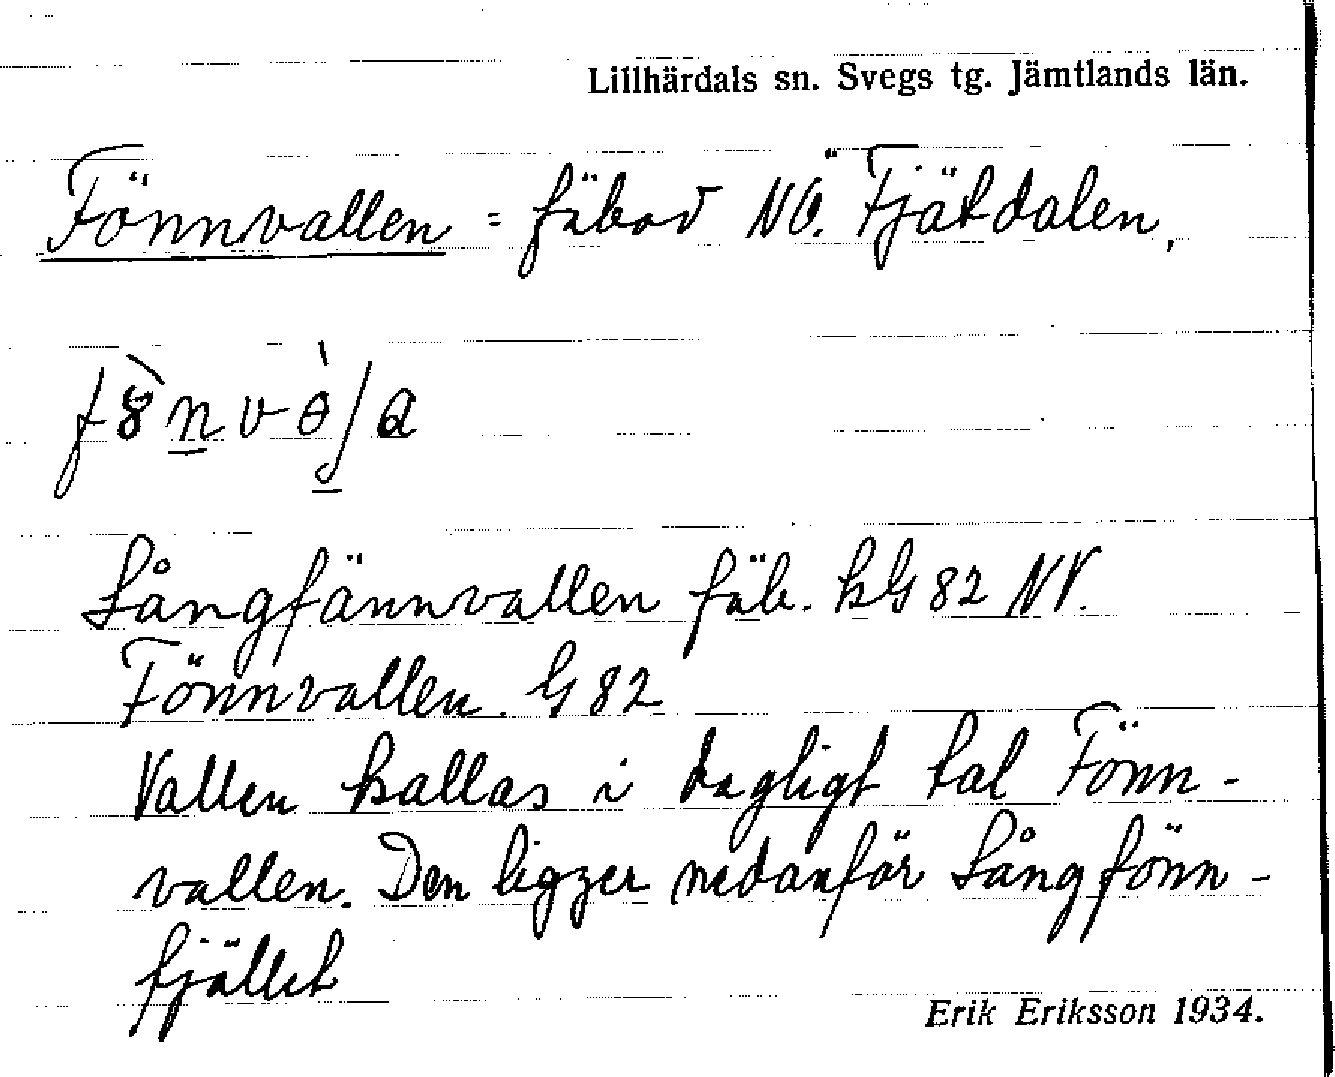 Lillhärdals sn. Svegs tg. Jämtlands län.
Fönnvallen = fäbod NÖ. Fjätdalen,
Långfännvallen fäb. kG 82 NV.
Fönnvallen. G 82
Vallen kallas i dagligt tal Fönn-
vallen. Den ligger nedanför Långfönn-
fjället
Erik Eriksson 1934.